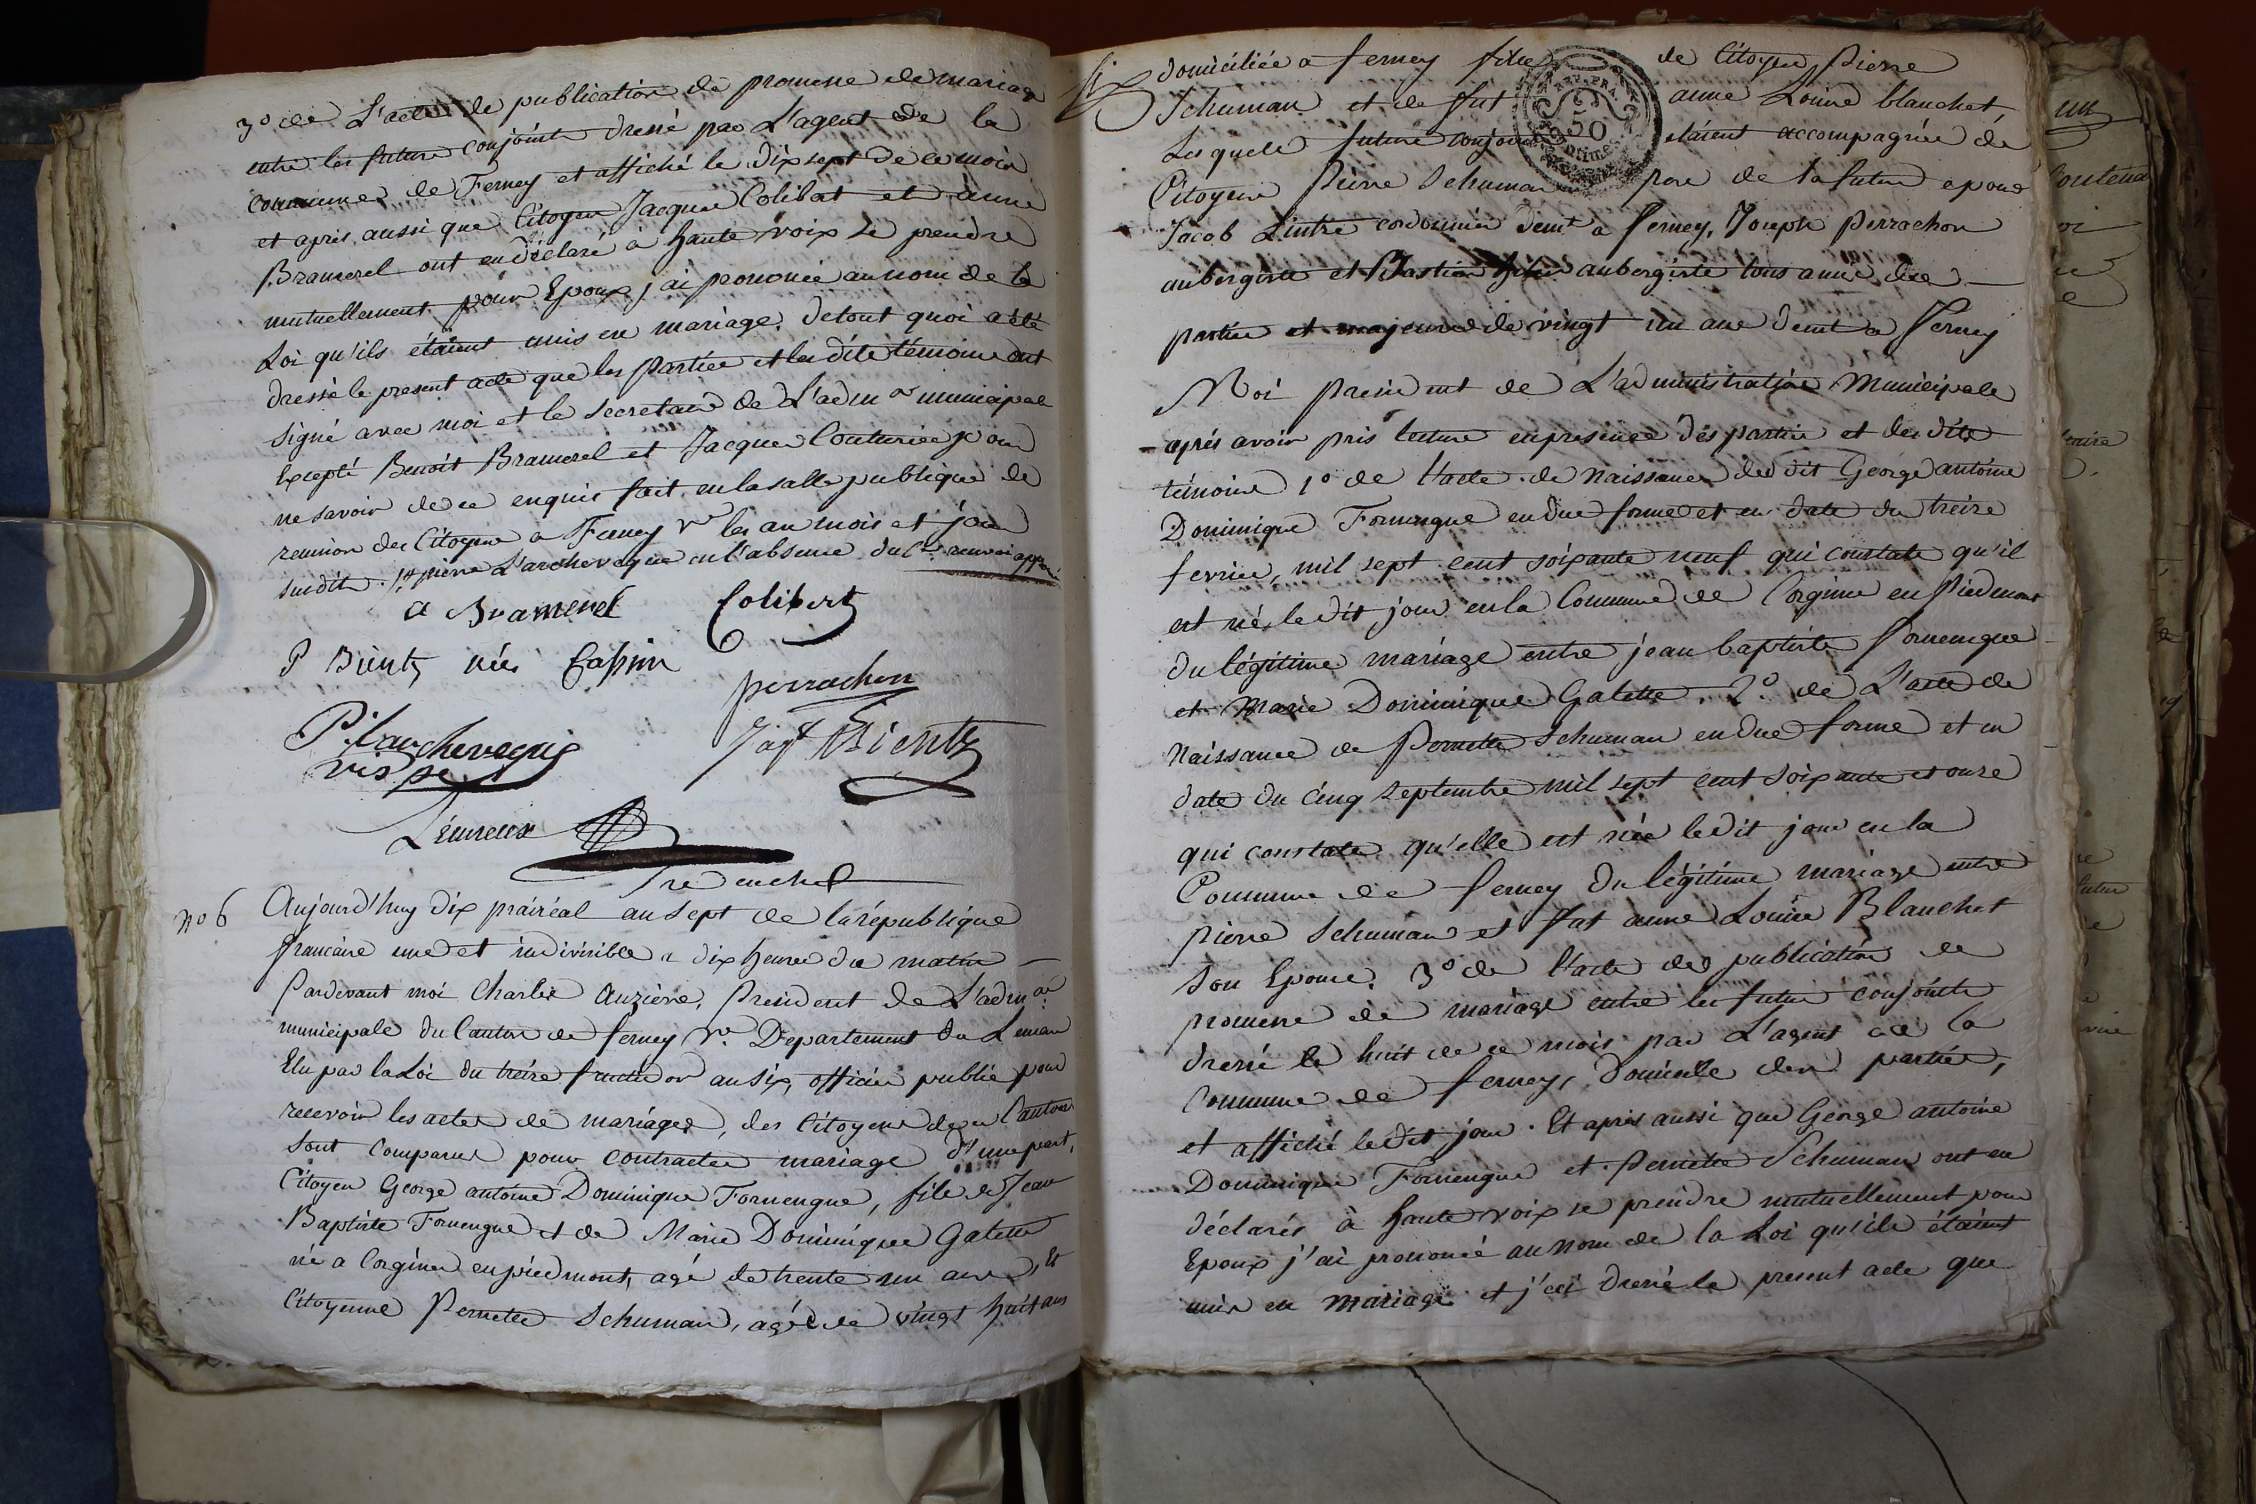 3º de L'acte de publication de promesse de mariage
entre les futurs conjoints dressé par L'agent de la
commune de Ferney et affiché le dix sept de ce mois
et après aussi que Citoyen Jacques Colibat et anne
Bramerel ont eu déclaré à haute voix se prendre
mutuellement pour Epoux, j'ai prononcé au nom de la
Loi qu'ils étaient unis en mariage. de tout quoi a été
dressé le present acte que les Parties et les dits témoins ont
signé avec moi et le secretaire de L'adm.on municipale
Excepté Benoit Bramerel et Jacques Couturier pour
ne savoir de ce enquis fait en la salle publique de
reunion des Citoyens a Ferney Vre les an mois et jour
susdits. Pierre L'archeveque en l'absence du renvoi approuvé
a Bramerel Colibert
P Bientz née Cassin
perrachon
P. Larcheveque
Jaqt Bientz
vis pt
Lémieux
No 6 Aujourd'huy dix prairéal an sept de la république
francaise une et indivisible a dix heures du matin
Pardevant moi Charles Auzière, President de L'adm.on
municipale du Canton de ferney Vre Departement du Leman
Elu par la Loi du treize fructidor an six, officier public pour
recevoir les actes de mariages, des Citoyens de ce Canton
sont comparus pour contracter mariage d'une part,
Citoyen George antoine Dominique Fornengue, fils de Jean
Baptiste Fornengue et de Marie Dominique Galette
né a Corginer en piedmont, agé de trente un ans, Et
Citoyenne Pernette Schuman, agée de vingt huit ans
domiciliée a ferney fille de Citoyen Pierre
REP. FRA.
50
Centimes
Schuman et de fut anne Louise blanchet,
Lesquels futurs conjoints étaient accompagnés de
Citoyens Pierre Schuman pere de la future epouse
Jacob Lintre cordonnier demt a ferney, Joseph Perrachon
aubergiste et Bastian aubergiste tous amis des
parties et majeurs de vingt un ans demt a ferney
Moi President de L'administration Municipale
après avoir pris lecture en presence des parties et des dits
témoins 1º de l'acte de Naissance du dit George antoine
Dominique Fornengue en due forme et en date du treize
fevrier, mil sept cent soixante neuf qui constate qu'il
est né le dit jour en la Commune de Corginer en Piedmont
du légitime mariage entre jean baptiste Fornengue
et Marie Dominique Galette. 2º de L'acte de
Naissance de Pernette Schuman en due forme et en
date du cinq septembre mil sept cent soixante et onze
qui constate qu'elle est née le dit jour en la
Commune de ferney du légitime mariage entre
pierre Schuman et fut anne Louise Blanchet
son Epouse. 3º de l'acte de publication de
promesse de mariage entre les futurs conjoints
dressé le huit de ce mois par L'agent de la
Commune de ferney, Domicile des parties,
et affiché le dit jour. Et après aussi que George antoine
Dominique Fornengue et Pernette Schuman ont eu
déclarés à haute voix se prendre mutuellement pour
Epoux j'ai prononcé au nom de la Loi qu'ils étaient
unis en mariage et j'ai dressé le present acte que